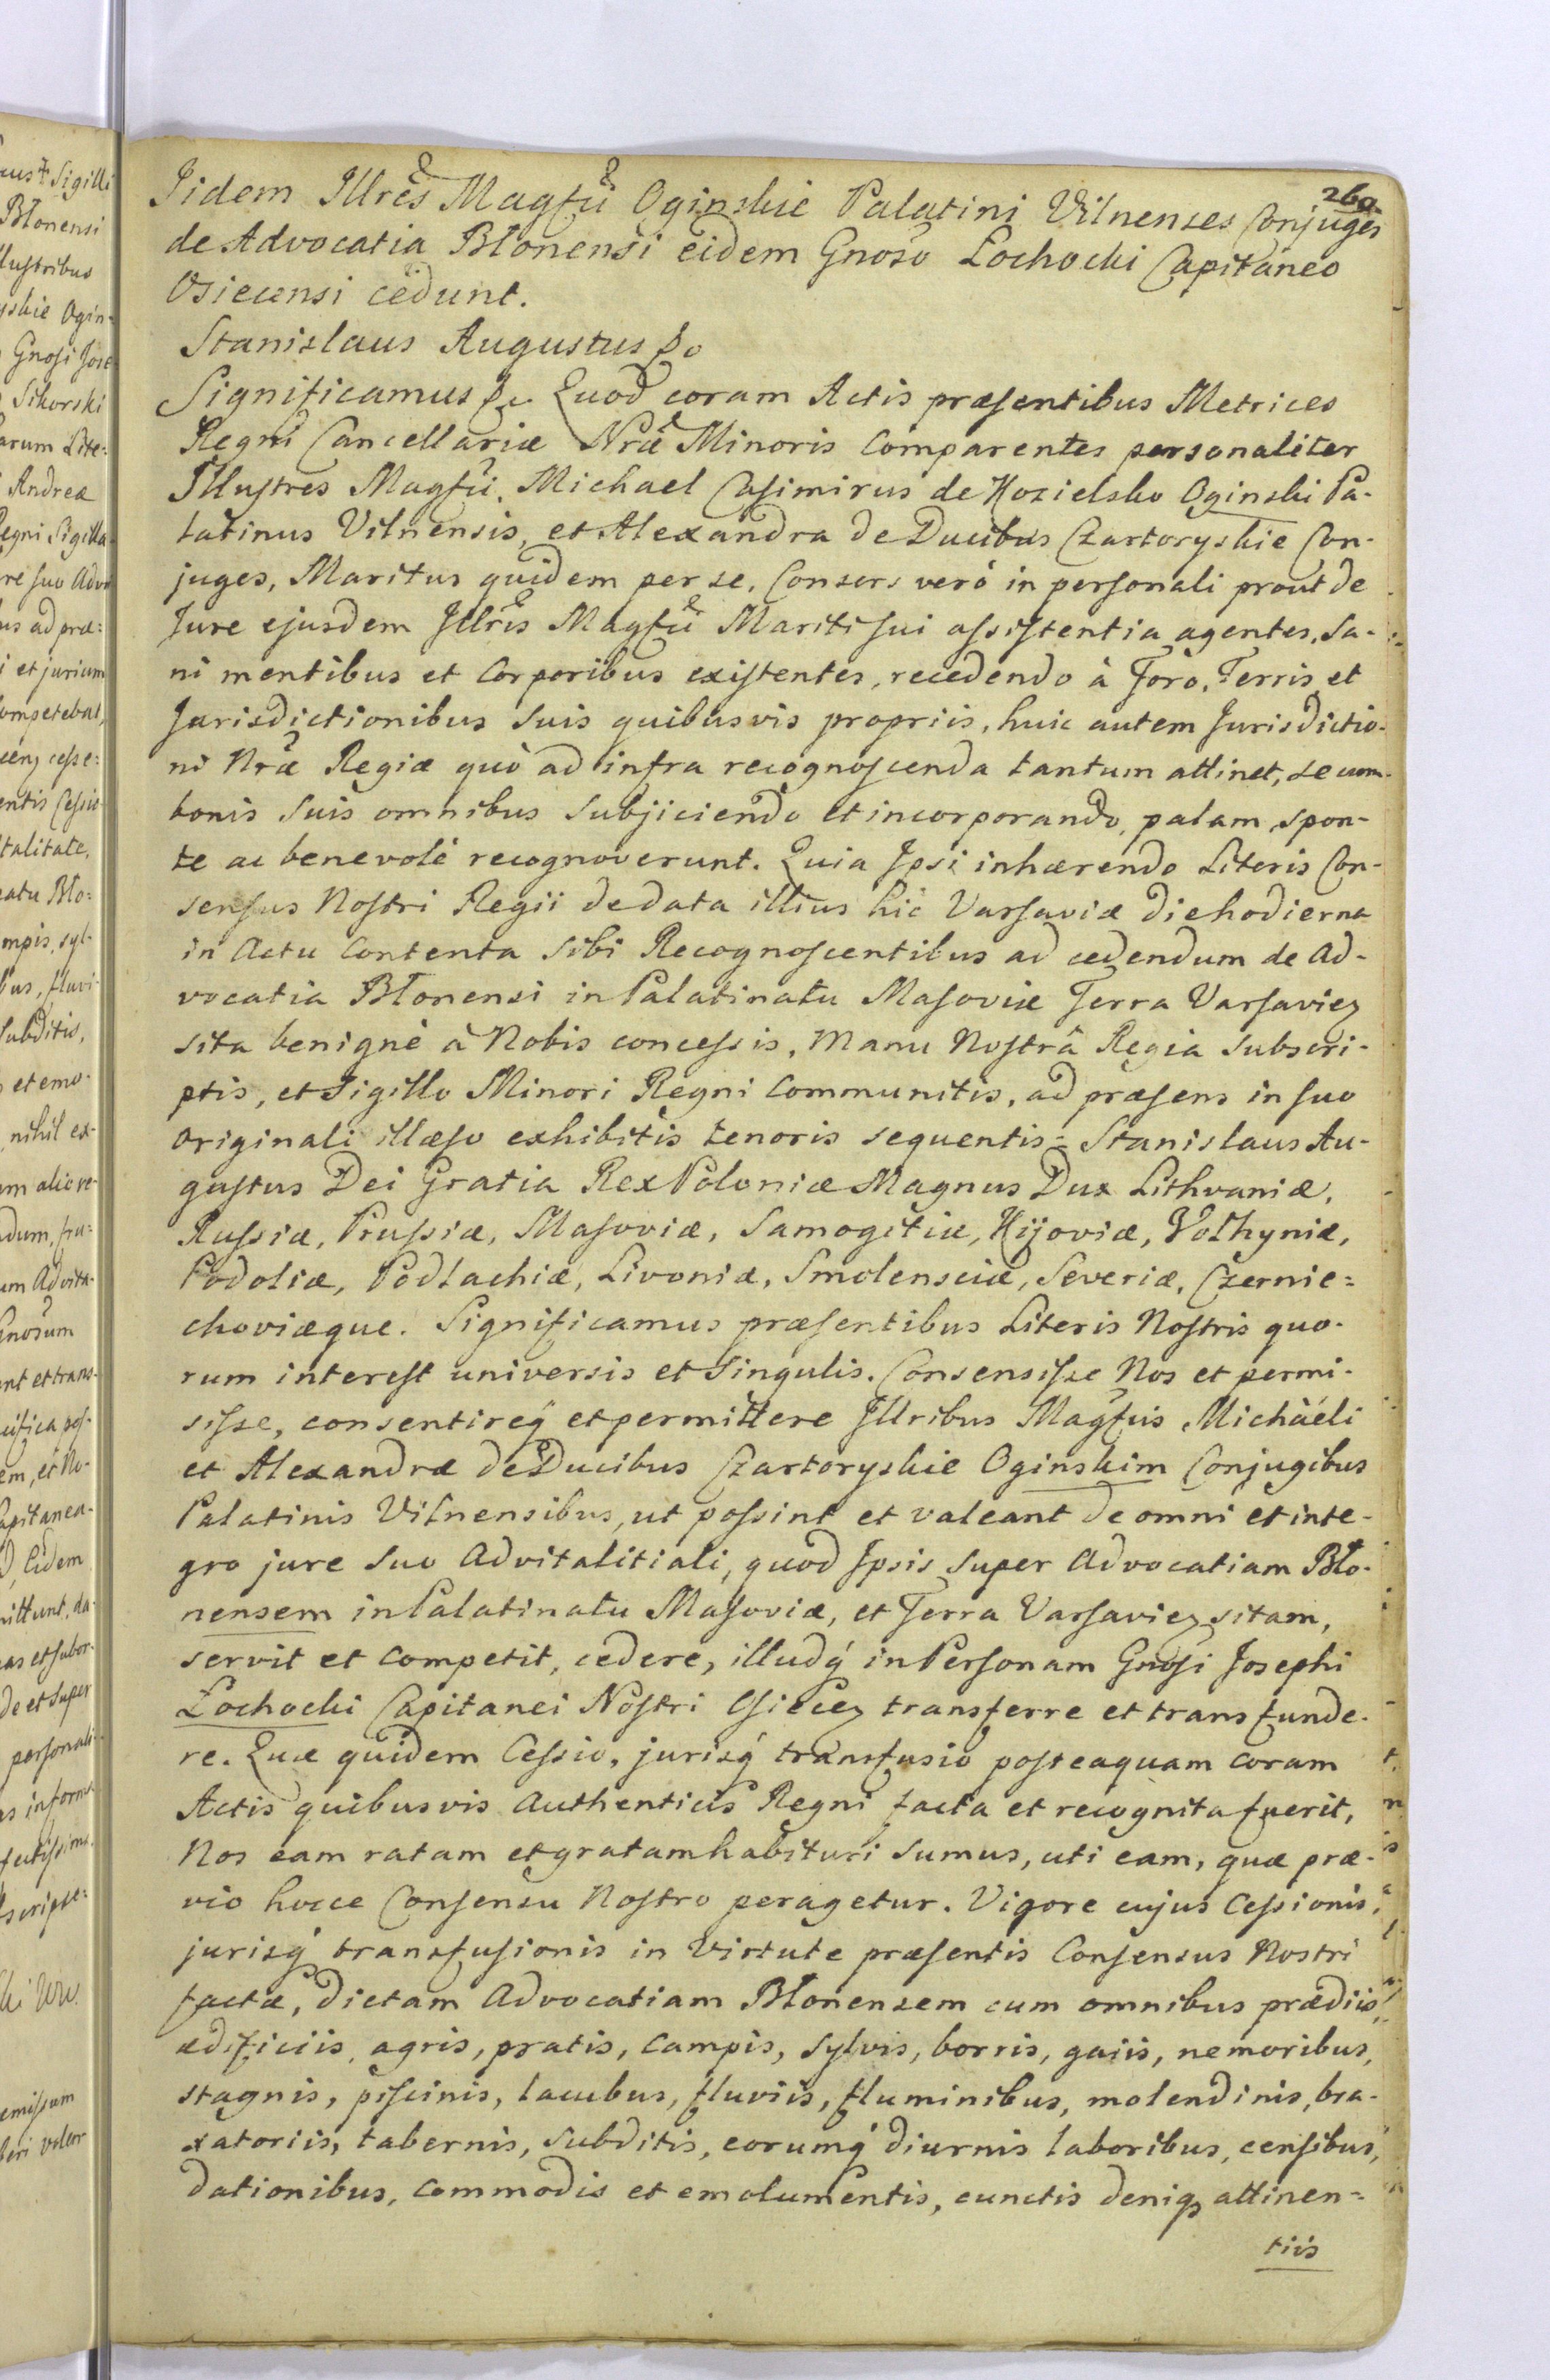 260.
Iidem Illres Magfci Oginskie Palatini Vilnenses Conjuges
de Advocatia Błonensi eidem Gnoso Łochocki Capitaneo
Osiecensi cedunt.
Stanislaus Augustus &c
Significamus &c. Quod coram Actis præsentibus Metrices
Regni Cancellariæ Nræ Minoris Comparentes personaliter
Illustres Magfci, Michael Casimirus de Kozielsko Oginski Pa-
latinus Vilnensis, et Alexandra de Ducibus Czartoryskie Con-
juges, Maritus quidem per se, Consors verò in personali prout de
Jure ejusdem Illris Magfci Mariti sui assistentia agentes, Sa-
ni mentibus et Corporibus existentes, recedendo à Foro, Terris et
Jurisdictionibus Suis quibusvis propriis, huic autem Jurisdictio-
ni Nræ Regiæ quò ad infra recognoscenda tantum attinet, se cum
bonis Suis omnibus Subjiciendo et incorporando, palam, spon-
te ac benevolè recognoverunt. Quia Ipsi inhærendo Literis Con-
sensus Nostri Regii de data illius hic Varsaviæ die hodierna
in Actu Contenta Sibi Recognoscentibus ad cedendum de Ad-
vocatia Błonensi in Palatinatu Masoviæ Terra Varsavieñ
sita benignè à Nobis concessis, Manu Nostrâ Regia Subscri-
ptis, et Sigillo Minori Regni Communitis, ad præsens in suo
Originali illæso exhibitis tenoris sequentis = Stanislaus Au-
gustus Dei Gratia Rex Poloniæ Magnus Dux Lithvaniæ,
Russiæ, Prussiæ, Masoviæ, Samogitiæ, Kijoviæ, Volhyniæ,
Podoliæ, Podlachiæ, Livoniæ, Smolensciæ, Severiæ, Czernie=
choviæque. Significamus præsentibus Literis Nostris quo-
rum interest universis et Singulis. Consensisse Nos et permi-
sisse, consentireq́ et permittere Illribus Magfcis Michaëli
et Alexandræ de Ducibus Czartoryskie Oginskim Conjugibus
Palatinis Vilnensibus, ut possint et valeant de omni et inte-
gro jure Suo Advitalitiali, quod Ipsis Super Advocatiam Bło-
nensem in Palatinatu Masoviæ, et Terra Varsavieñ sitam,
servit et Competit, cedere, illudq́ in Personam Gnosi Josephi
Łochocki Capitanei Nostri Osieceñ transferre et transfunde-
re. Quæ quidem Cessio, jurisq́ transfusio posteaquam coram
Actis quibusvis Authenticis Regni facta et recognita fuerit,
Nos eam ratam et gratam habituri Sumus, uti eam, quæ præ-
vio hocce Consensu Nostro peragetur. Vigore cujus Cessionis,
jurisq́ transfusionis in Virtute præsentis Consensus Nostri
factæ, dictam Advocatiam Błonensem cum omnibus prædiis,
ædificiis, agris, pratis, Campis, sylvis, borris, gaiis, nemoribus,
stagnis, piscinis, lacubus, fluviis, fluminibus, molendinis, bra-
xatoriis, tabernis, Subditis, eorumq́ diurnis laboribus, censibus,
dationibus, Commodis et emolumentis, cunctis deniq́ attinen=
tiis